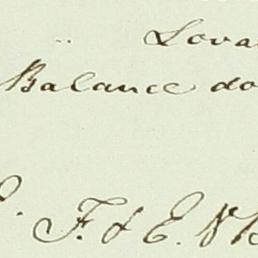 Lova
Balance do
F. & E. N